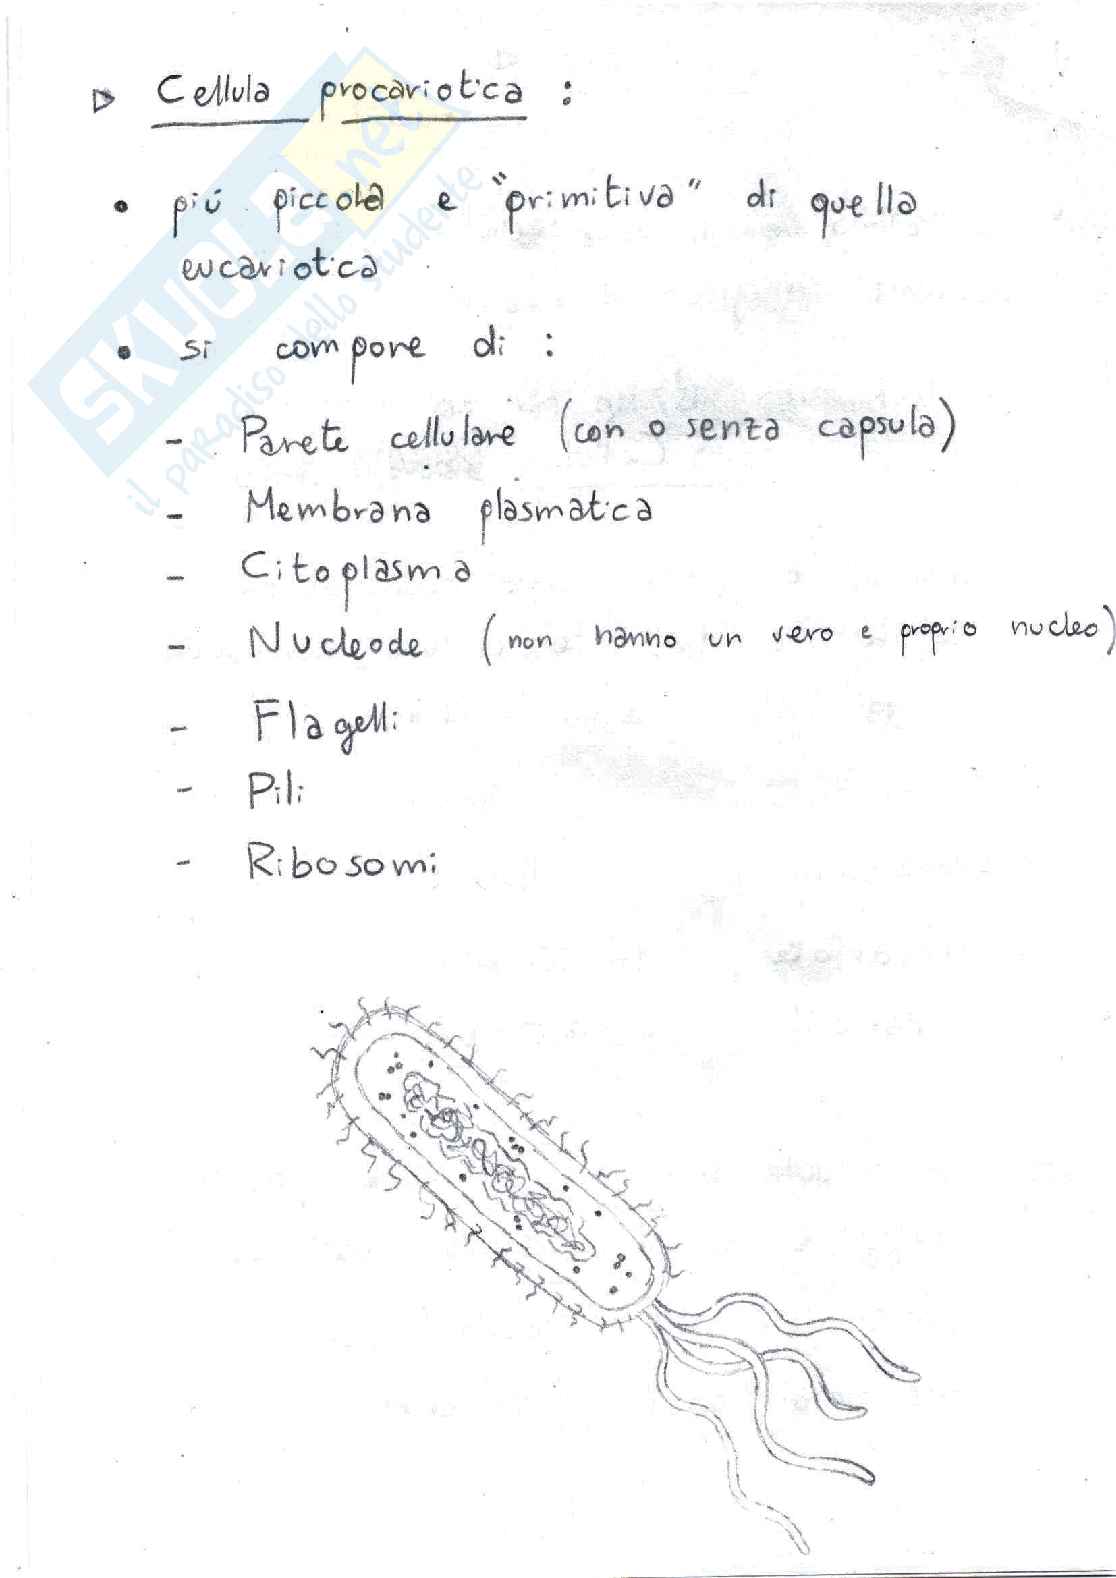 ▷ Cellula procariotica :
• più piccola e "primitiva" di quella
eucariotica
• si compone di :
- Parete cellulare (con o senza capsula)
- Membrana plasmatica
- Citoplasma
- Nucleode (non hanno un vero e proprio nucleo)
- Flagelli
- Pili
- Ribosomi
SKUOLA.net
il paradiso dello studente